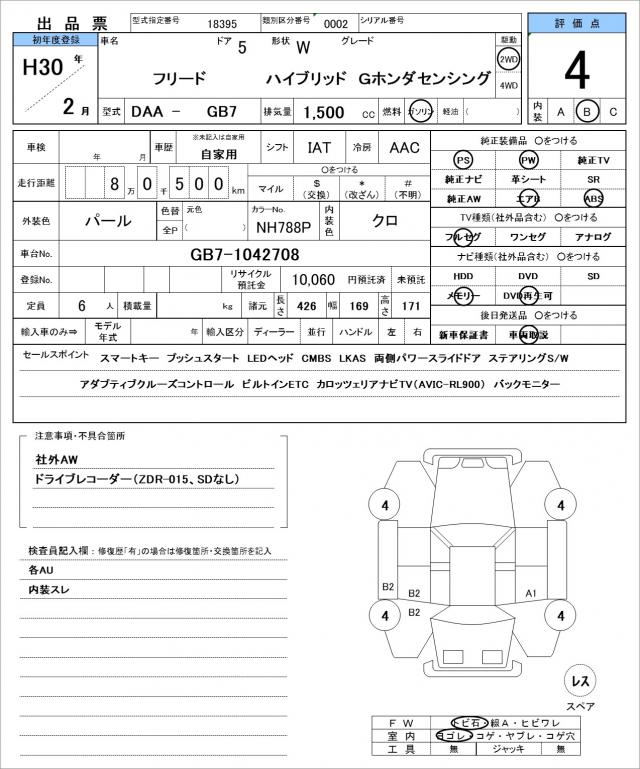 出品票 型式指定番号 18395 類別区分番号 0002 シリアル番号
評価点
初年度登録 車名 ドア 5 形状 W グレード 駆動
H30 年 フリード ハイブリッド Gホンダセンシング 2WD 4
4WD
2 月 型式 DAA - GB7 排気量 1,500 cc 燃料 ガソリン 軽油 ( ) 内装 A B C
車検 年 月 車歴 ※未記入は自家用 自家用 シフト IAT 冷房 AAC
純正装備品 〇をつける
PS PW 純正TV
走行距離 8 万 0 千 5 0 0 km 〇をつける
マイル $ (交換) * (改ざん) # (不明)
純正ナビ 革シート SR
純正AW エアB ABS
外装色 パール 色替 元色 全P ( ) カラーNo. NH788P 内装色 クロ
TV種類(社外品含む) 〇をつける
フルセグ ワンセグ アナログ
車台No. GB7-1042708
ナビ種類(社外品含む) 〇をつける
登録No. リサイクル預託金 10,060 円預託済 未預託
HDD DVD SD
メモリー DVD再生可
定員 6 人 積載量 kg 諸元 長さ 426 幅 169 高さ 171
後日発送品 〇をつける
輸入車のみ⇒ モデル年式 年 輸入区分 ディーラー 並行 ハンドル 左 右
新車保証書 車両取説
セールスポイント スマートキー プッシュスタート LEDヘッド CMBS LKAS 両側パワースライドドア ステアリングS/W
アダプティブクルーズコントロール ビルトインETC カロッツェリアナビTV(AVIC-RL900) バックモニター
注意事項・不具合箇所
社外AW
ドライブレコーダー(ZDR-015、SDなし)
検査員記入欄：修復歴「有」の場合は修復箇所・交換箇所を記入
各AU
内装スレ
4 4
B2 B2 A1
B2
4 4
レス
スペア
FW トビ石・線A・ヒビワレ
室内 ヨゴレ・コゲ・ヤブレ・コゲ穴
工具 無 ジャッキ 無